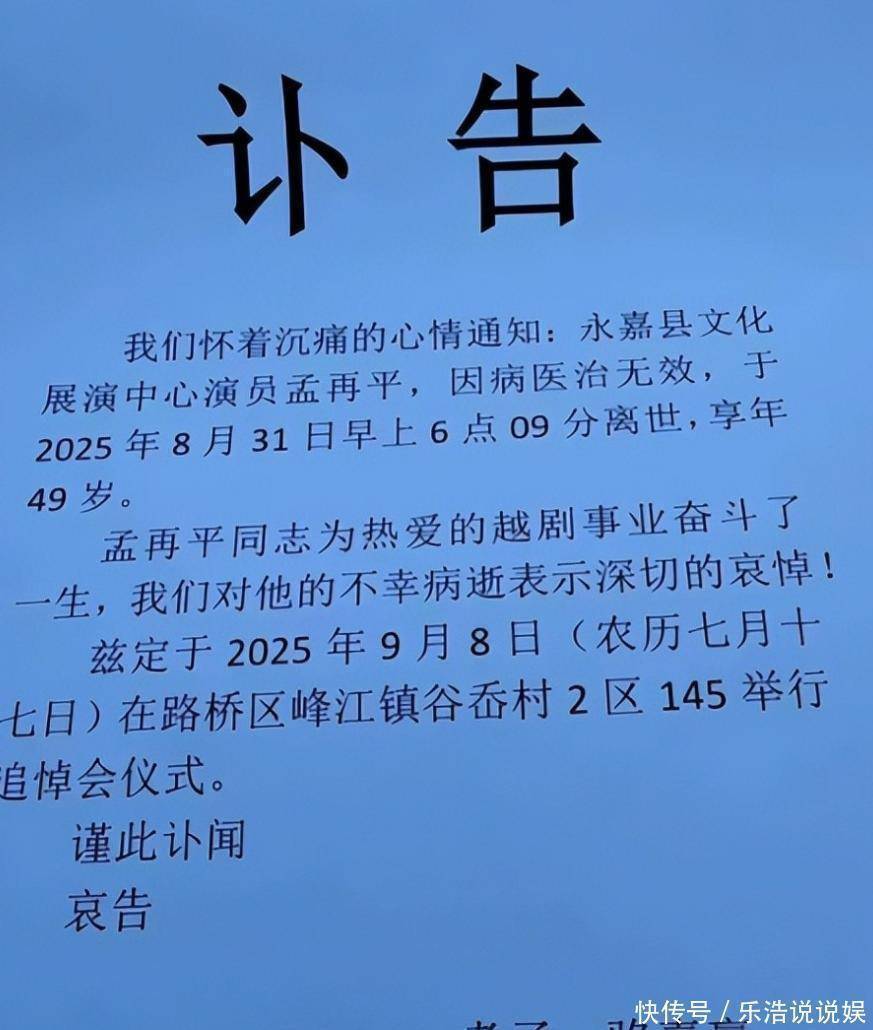 讣告
我们怀着沉痛的心情通知：永嘉县文化
展演中心演员孟再平，因病医治无效，于
2025年8月31日早上6点09分离世,享年
49岁。
孟再平同志为热爱的越剧事业奋斗了
一生，我们对他的不幸病逝表示深切的哀悼！
兹定于2025年9月8日（农历七月十
七日）在路桥区峰江镇谷岙村2区145举行
追悼会仪式。
谨此讣闻
哀告
快传号／乐浩说说娱